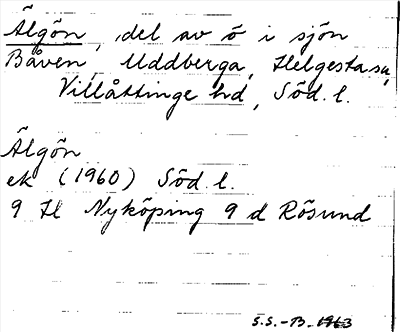 Älgön, del av ö i sjön
Båven, Uddberga, Helgesta sn,
Villåttinge hd, Söd. l.
Älgön
ek (1960) Söd. l.
9 H Nyköping 9 d Rösund
S.S.-B. 1963